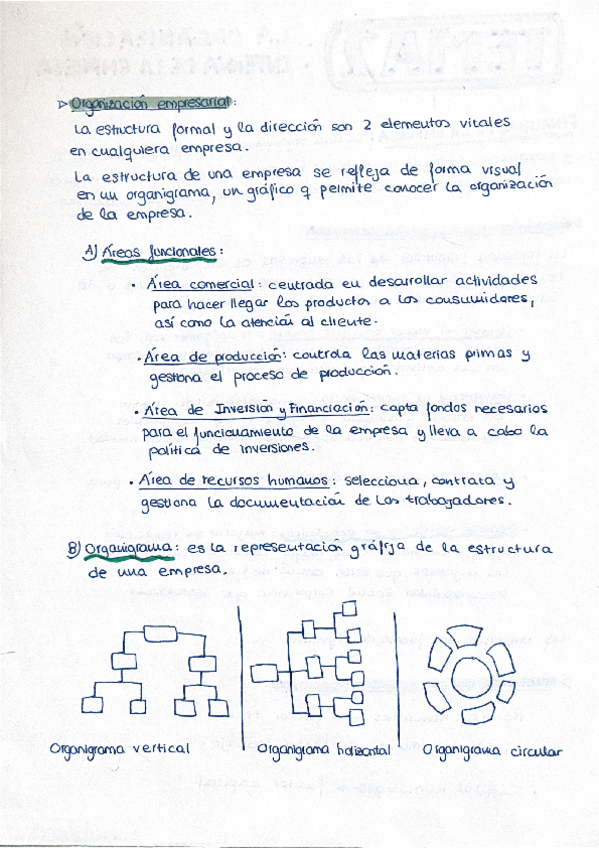 ▷ Organización empresarial:
La estructura formal y la dirección son 2 elementos vitales
en cualquiera empresa.
La estructura de una empresa se refleja de forma visual
en un organigrama, un gráfico q permite conocer la organización
de la empresa.
A) Áreas funcionales:
· Área comercial: centrada en desarrollar actividades
para hacer llegar los productos a los consumidores,
así como la atención al cliente.
· Área de producción: controla las materias primas y
gestiona el proceso de producción.
· Área de Inversión y Financiación: capta fondos necesarios
para el funcionamiento de la empresa y lleva a cabo la
política de inversiones.
· Área de recursos humanos: selecciona, contrata y
gestiona la documentación de los trabajadores.
B) Organigrama: es la representación gráfica de la estructura
de una empresa.
Organigrama vertical
Organigrama horizontal
Organigrama circular